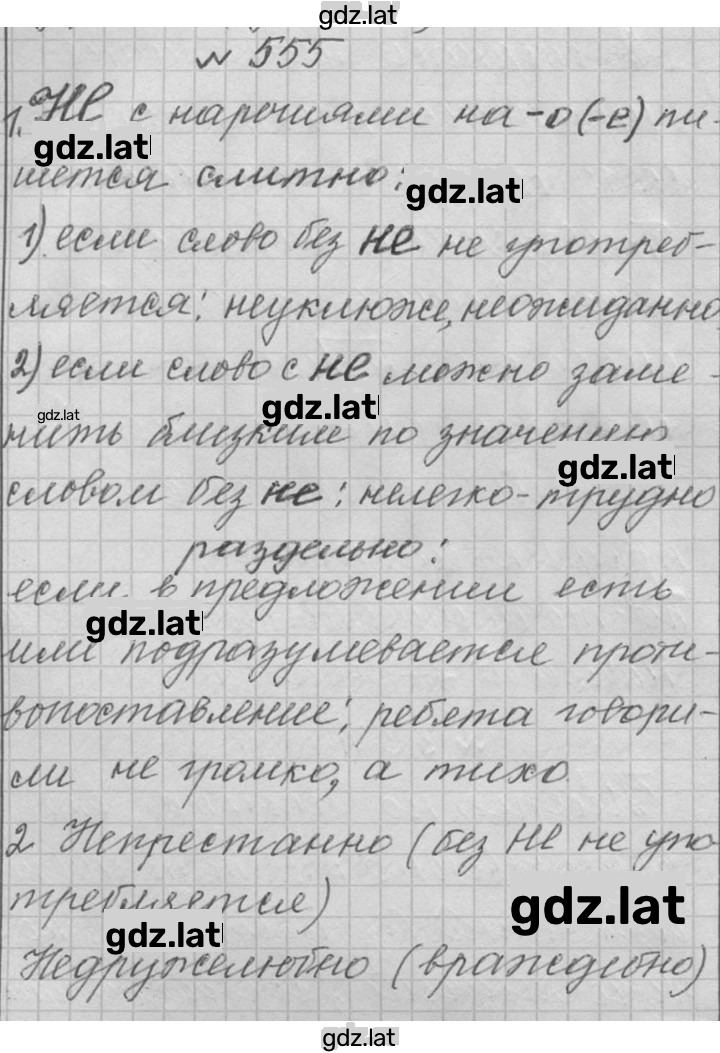 gdz.lat
№ 555
1. НЕ с наречиями на -о (-е) пи-
gdz.lat
шется слитно:
gdz.lat
1) если слово без не не употреб-
ляется: неуклюже, неожиданно
2) если слово с не можно заме-
gdz.lat
gdz.lat
нить близким по значению
gdz.lat
словом без не: нелегко - трудно
раздельно:
если в предложении есть
gdz.lat
или подразумевается проти-
вопоставление: ребята говори-
ли не громко, а тихо
2 Непрестанно (без НЕ не упо
требляется)
gdz.lat
gdz.lat
Недружелюбно (враждебно)
gdz.lat